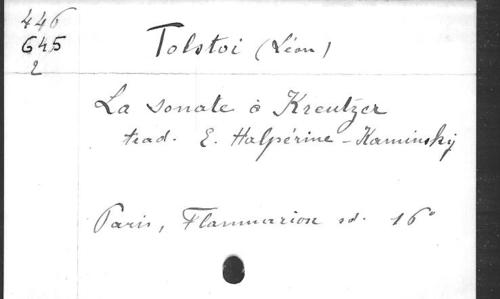 446
645
2
Tolstoi (Léon)
La sonate à Kreutzer
trad. E. Halpérine-Kaminsky
Paris, Flammarion sd. 16°